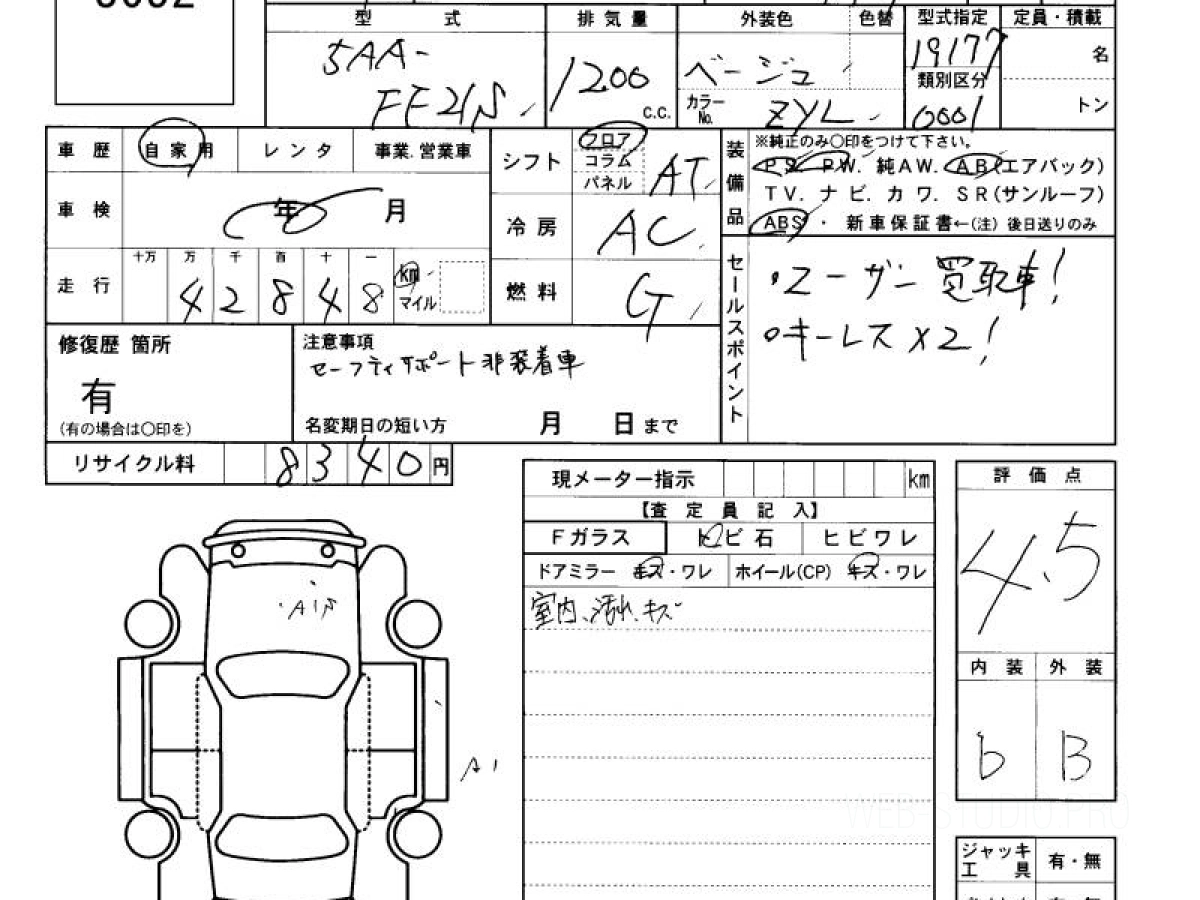 型 式
排 気 量
外装色
色替
型式指定
定員・積載
5AA-
FF21S
1200
C.C.
ベージュ
カラーNo.
ZYL
19177
類別区分
0001
名
トン
車 歴
自 家 用
レ ン タ
事業.営業車
シフト
フロア
コラム
パネル
AT
装備品
※純正のみ〇印をつけて下さい。
PS. PW. 純AW. AB(エアバック)
TV. ナ ビ. カ ワ. SR(サンルーフ)
ABS ・ 新車保証書←(注) 後日送りのみ
車 検
年
月
冷 房
AC
走 行
十万 万 千 百 十 一
4 2 8 4 8
km
マイル
燃 料
G
セールスポイント
・ユーザー買取車!
・キーレス×2!
修復歴 箇所
有
(有の場合は〇印を)
注意事項
セーフティサポート非装着車
名変期日の短い方
月
日 まで
リサイクル料
8340
円
現メーター指示
km
【査 定 員 記 入】
Fガラス
トビ石
ヒビワレ
ドアミラー キズ・ワレ
ホイール(CP) キズ・ワレ
室内、汚れ、キズ
評 価 点
4.5
内 装
外 装
b
B
A1
ジャッキ
工 具
有・無
WEB-STUDIO.PRO